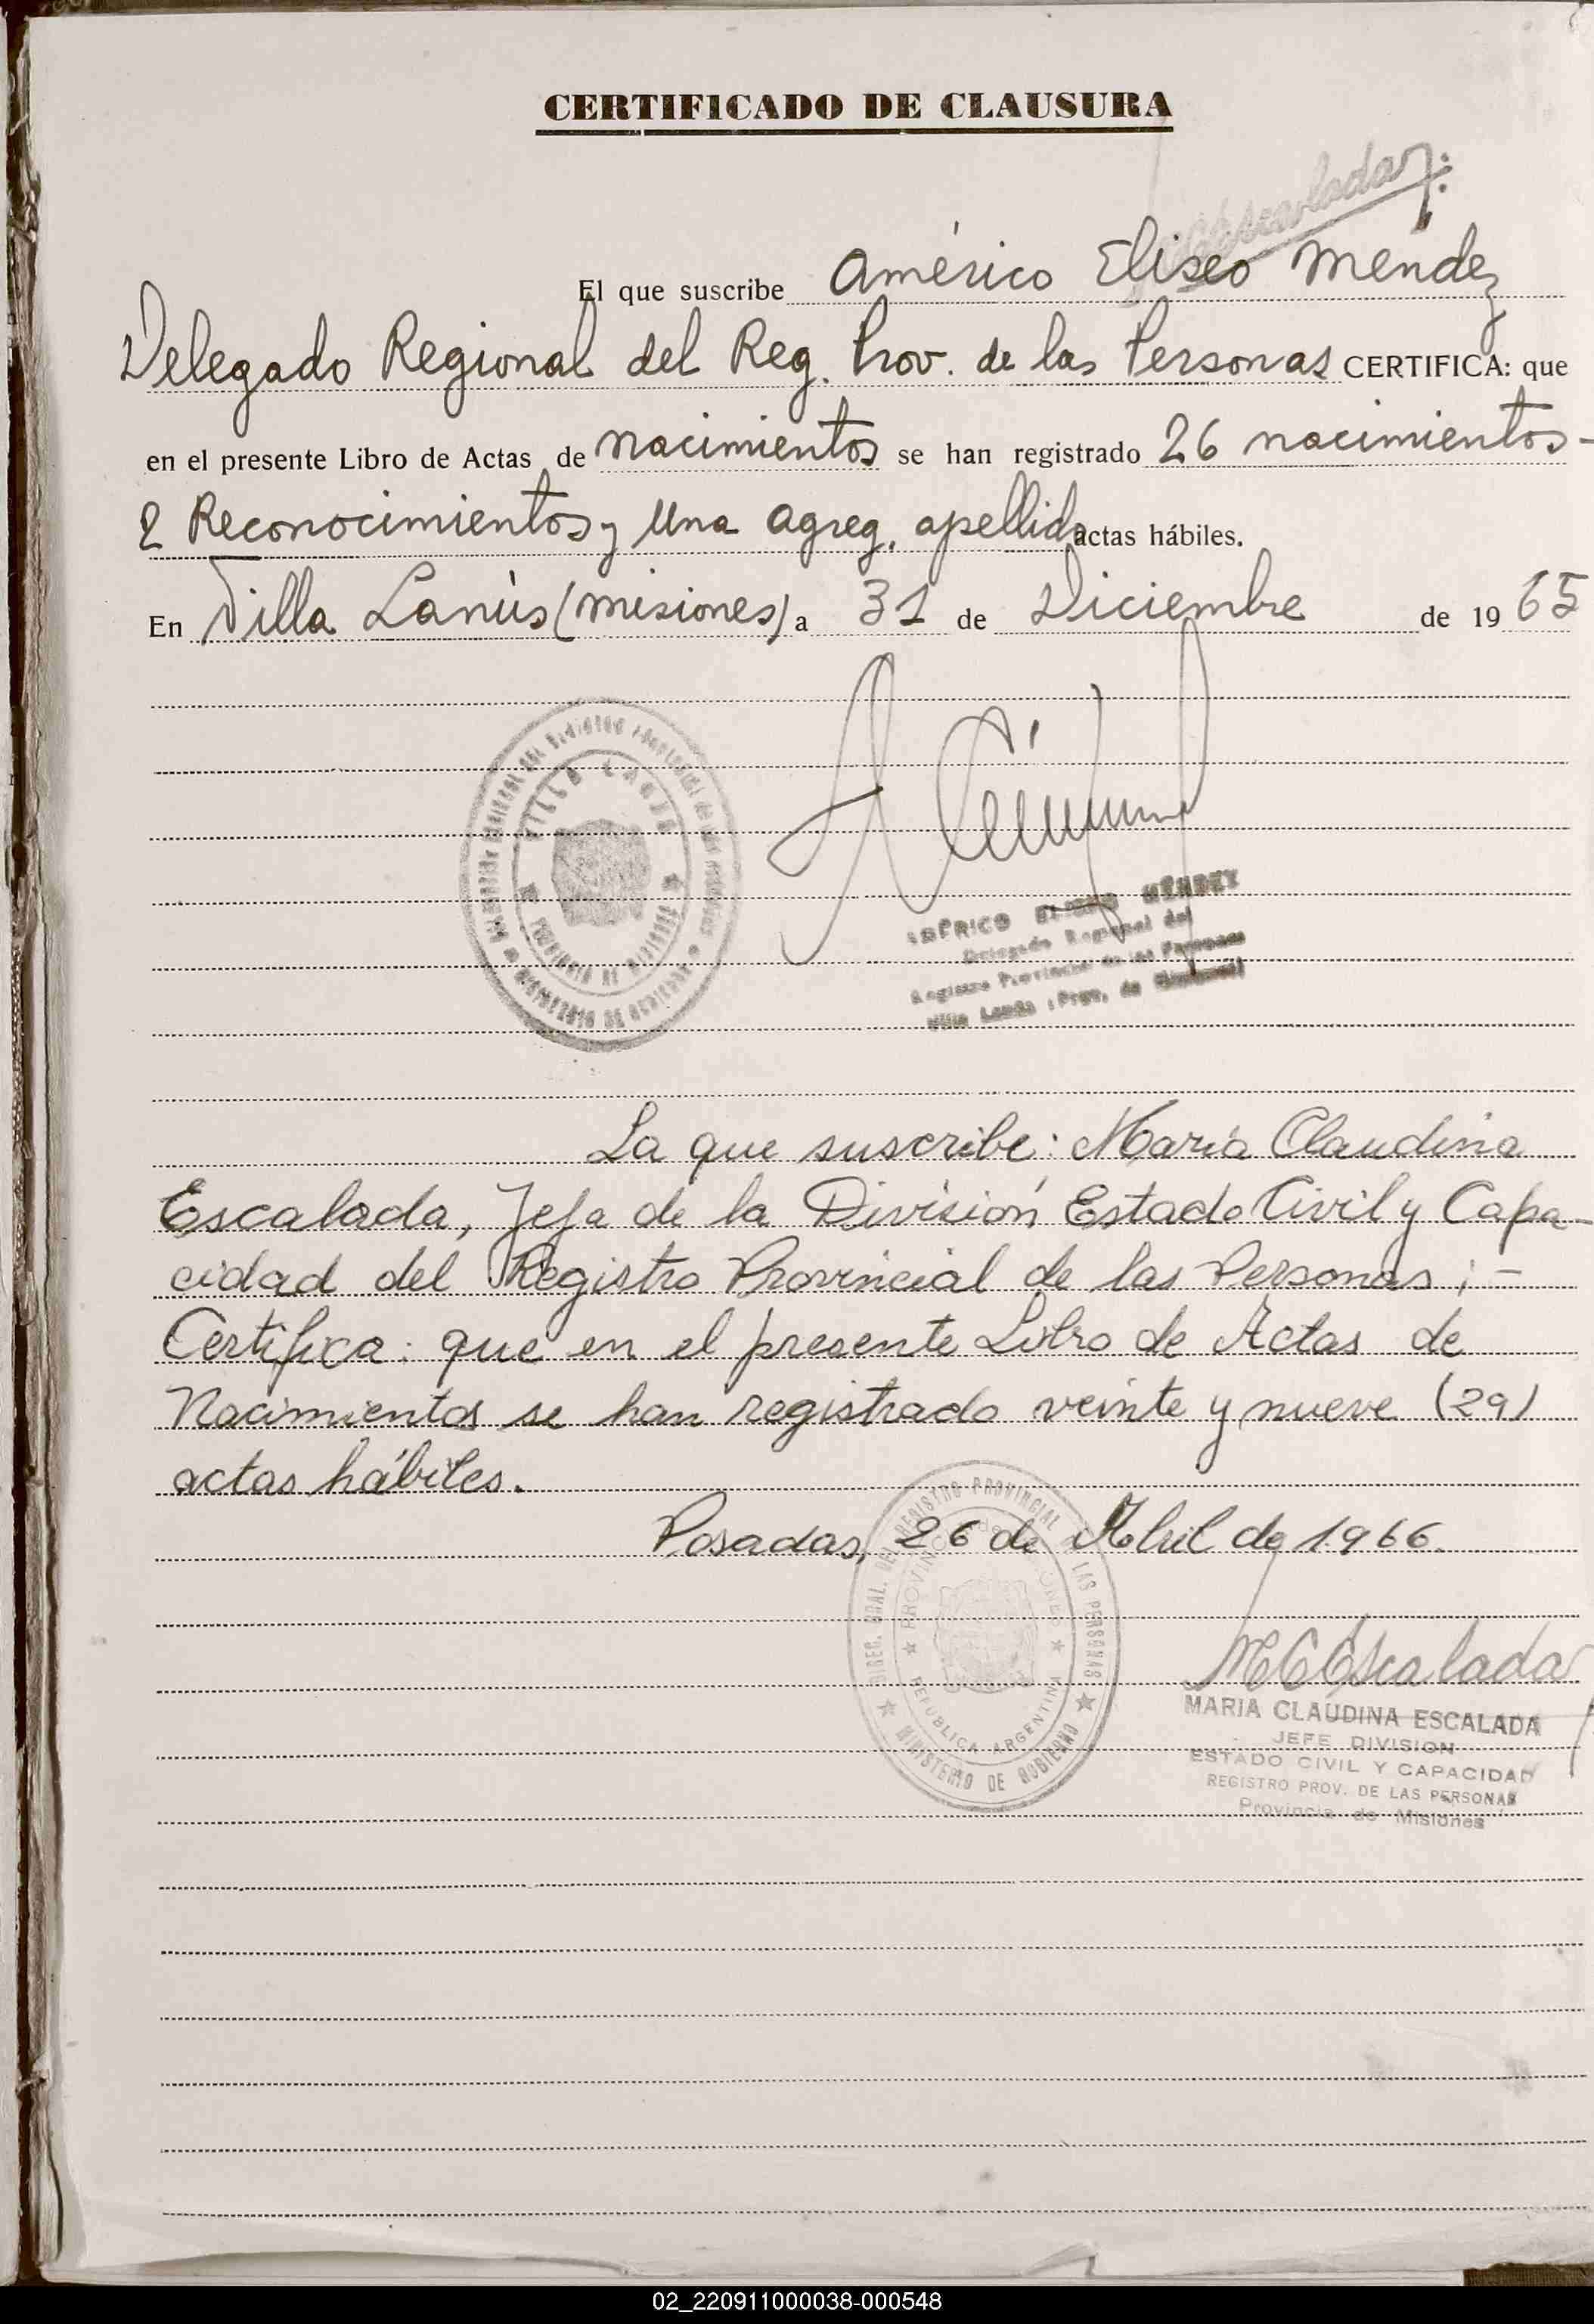 CERTIFICADO DE CLAUSURA
Escalada
El que suscribe Américo Eliseo Méndez
Delegado Regional del Reg. Prov. de las Personas CERTIFICA: que
en el presente Libro de Actas de Nacimientos se han registrado 26 nacimientos-
2 Reconocimientos y Una agreg. apellido actas hábiles.
En Villa Lanús (Misiones) a 31 de Diciembre de 1965
VILLA LANUS
PROVINCIA DE MISIONES
MINISTERIO DE GOBIERNO
AMÉRICO ELISEO MÉNDEZ
Delegado Regional del
Registro Provincial de las Personas
Villa Lanús (Prov. de Misiones)
La que suscribe: María Claudina
Escalada, Jefa de la División Estado Civil y Capa-
cidad del Registro Provincial de las Personas; -
Certifica: que en el presente Libro de Actas de
Nacimientos se han registrado veinte y nueve (29)
actas hábiles.
Posadas, 26 de Abril de 1966.
DIREC. GRAL. DEL REGISTRO PROVINCIAL DE LAS PERSONAS
PROVINCIA DE MISIONES
REPUBLICA ARGENTINA
MINISTERIO DE GOBIERNO
MCEscalada
MARIA CLAUDINA ESCALADA
JEFE DIVISION
ESTADO CIVIL Y CAPACIDAD
REGISTRO PROV. DE LAS PERSONAS
Provincia de Misiones
02_220911000038-000548